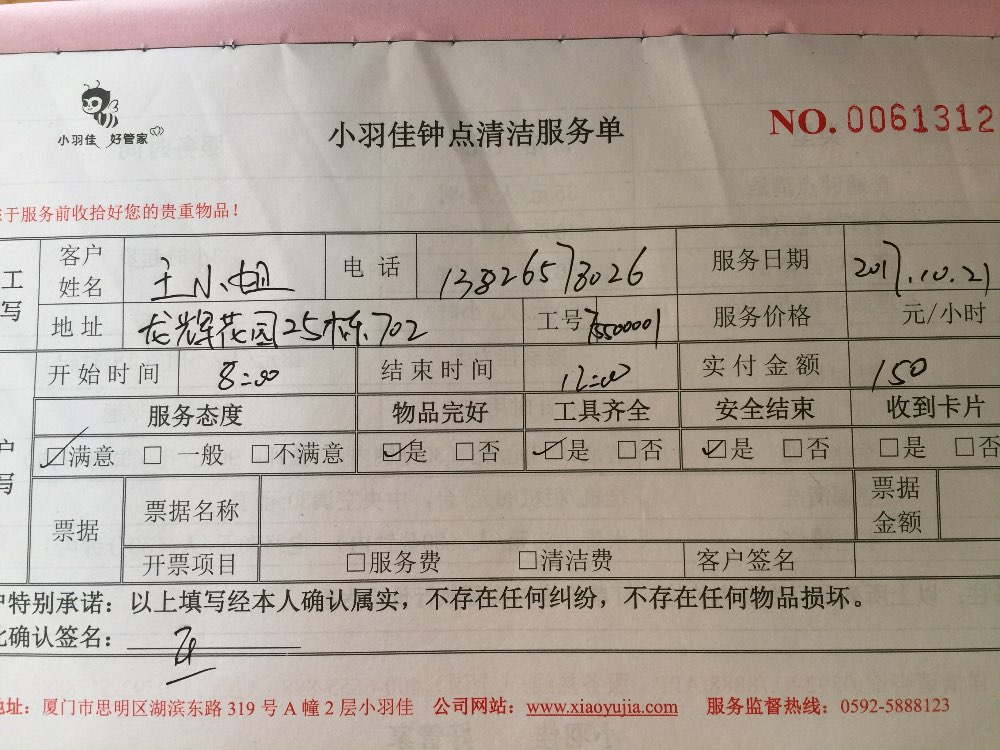 小羽佳 好管家
小羽佳钟点清洁服务单
NO. 0061312
于服务前收拾好您的贵重物品！
工 客户姓名 王小姐 电话 13826578026 服务日期 2017.10.21
写 地址 龙辉花园25栋702 工号 服务价格 元/小时
开始时间 8:00 结束时间 12:00 实付金额 150
服务态度 物品完好 工具齐全 安全结束 收到卡片
户 ☑满意 □ 一般 □不满意 ☑是 □否 ☑是 □否 ☑是 □否 □是 □否
写 票据 票据名称 票据金额
开票项目 □服务费 □清洁费 客户签名
户特别承诺：以上填写经本人确认属实，不存在任何纠纷，不存在任何物品损坏。
此确认签名：
地址：厦门市思明区湖滨东路 319 号 A 幢 2 层小羽佳 公司网站：www.xiaoyujia.com 服务监督热线：0592-5888123